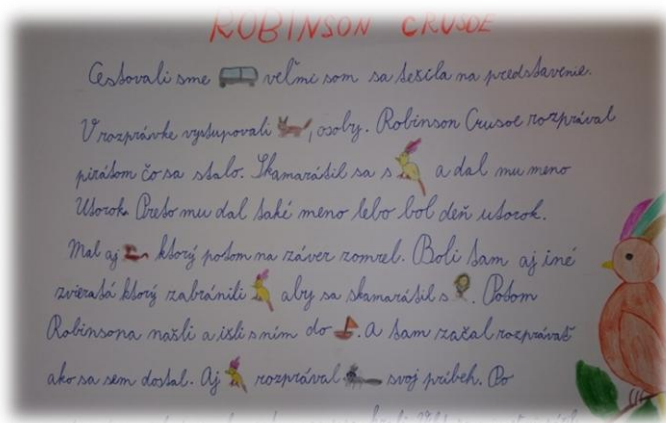 ROBINSON CRUSOE
Cestovali sme veľmi som sa tešila na predstavenie.
V rozprávke vystupovali , osoby. Robinson Crusoe rozprával
pirátom čo sa stalo. Skamarátil sa s a dal mu meno
Utorok. Preto mu dal také meno lebo bol deň utorok.
Mal aj ktorý potom na záver zomrel. Boli tam aj iné
zvieratá ktorý zabránili aby sa skamarátil s . Potom
Robinsona našli a išli s ním do . A tam začal rozprávať
ako sa sem dostal. Aj rozprával svoj príbeh. Po